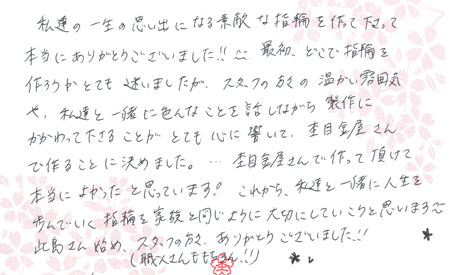 私達の一生の思い出になる素敵な指輪を作って下さって
本当にありがとうございました!! 最初、どこで指輪を
作ろうかとても迷いましたが、スタッフの方々の温かい雰囲気
や、私達と一緒に色んなことを話しながら製作に
かかわって下さることがとても心に響いて、杢目金屋さん
で作ることに決めました。… 杢目金屋さんで作って頂けて
本当によかったと思っています。これから、私達と一緒に人生を
歩んでいく指輪を家族と同じように大切にしていこうと思います
此島さん始め、スタッフの方々、ありがとうございました!!
(職人さんももちろん!!)